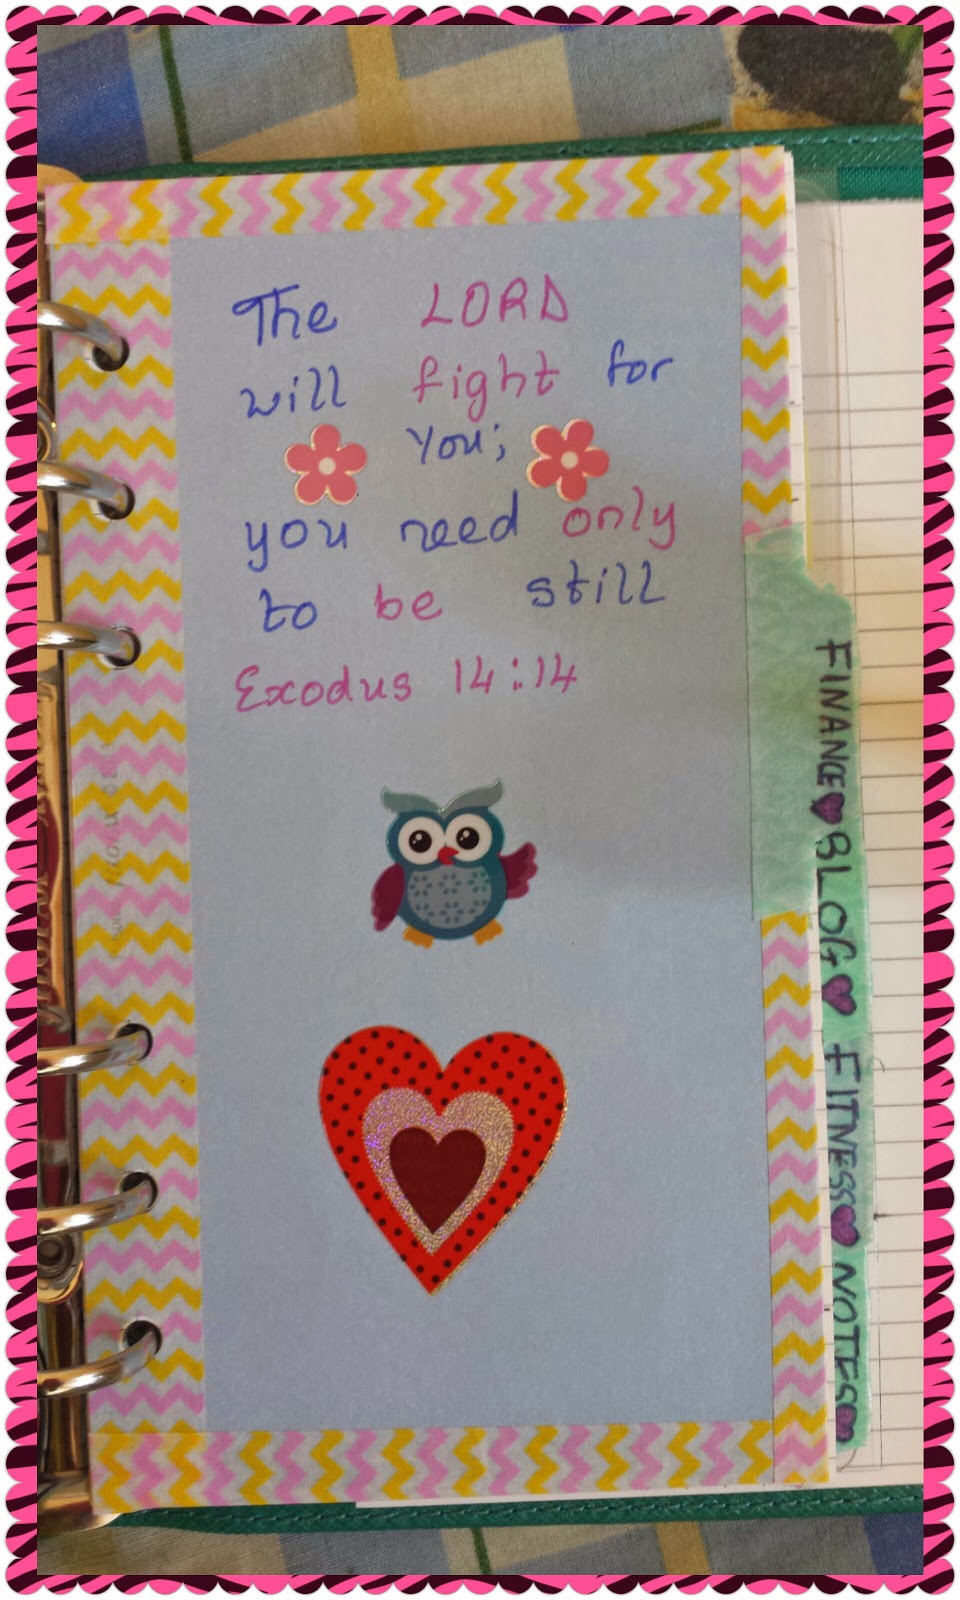 The LORD
will fight for
You;
you need only
to be still
Exodus 14:14
FINANCE♥BLOG♥ FITNESS♥NOTES♥